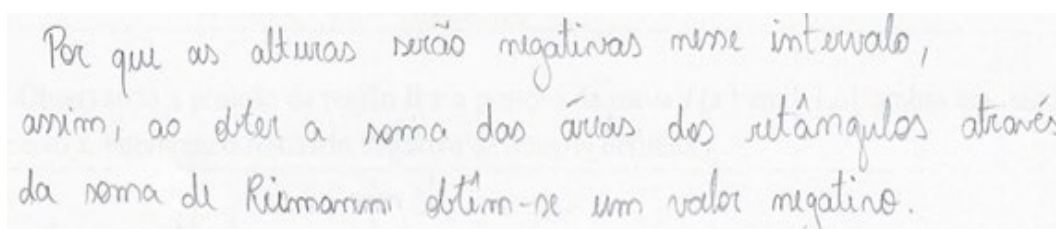 Por que as alturas serão negativas nesse intervalo,
assim, ao obter a soma das áreas dos retângulos através
da soma de Riemann obtêm-se um valor negativo.